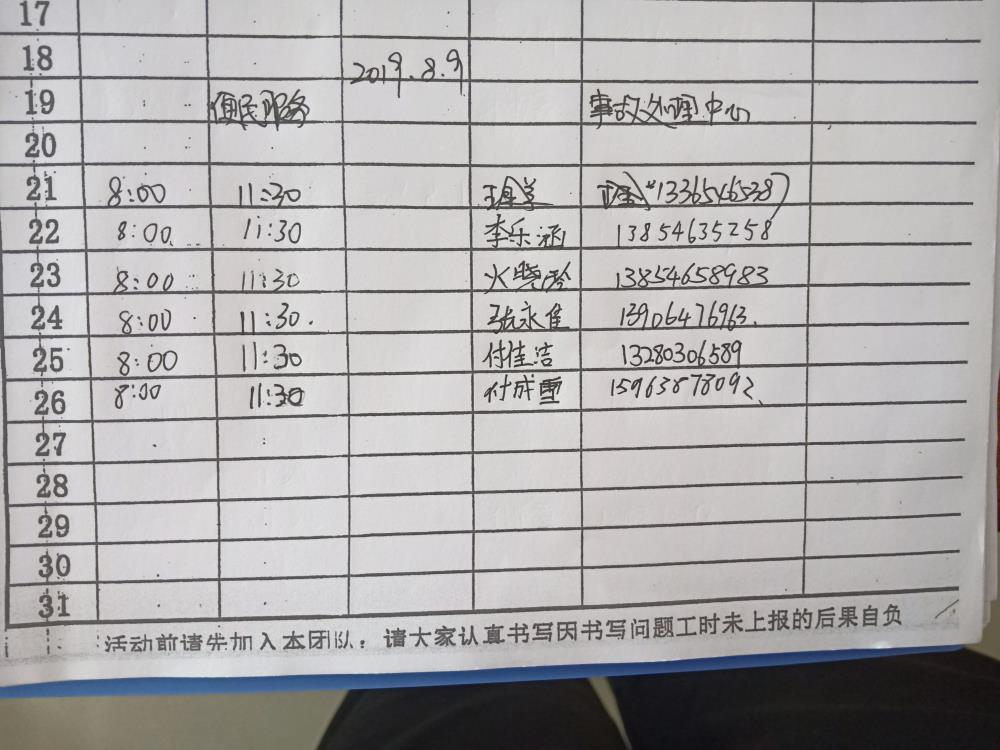 17
18 2019.8.9
19 便民服务 事故处理中心
20
21 8:00 11:30
22 8:00 11:30 李乐涵 13854635258
23 8:00 11:30 火晓玲 13854658983
24 8:00 11:30. 张永佳 13906476963.
25 8:00 11:30 付佳洁 13280306589
26 8:00 11:30 付成雪 15963878092
27
28
29
30
31
活动前请先加入本团队，请大家认真书写因书写问题工时未上报的后果自负